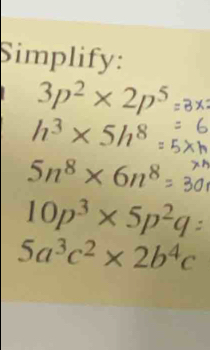 Simplify:
3p² × 2p⁵ =3×2
= 6
h³ × 5h⁸ = 5×h
×h
5n⁸ × 6n⁸ = 30
10p³ × 5p²q =
5a³c² × 2b⁴c